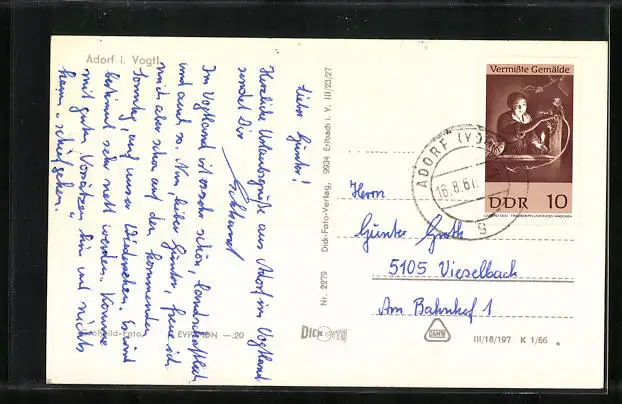 Adorf i. Vogtl.
Lieber Günter!
Herzliche Urlaubsgrüße aus Adorf im Vogtland
sendet Dir Eckhard
Im Vogtland ist es sehr schön, landschaftlich
und auch so. Nun, lieber Günter, freue ich
mich aber schon auf den kommenden
Sonntag, auf unser Wiedersehen. Es wird
bestimmt sehr nett werden. Komme
mit guten Vorsätzen hin und nichts
schief gehen.
EVP MDN —.20
Nr. 2279 Dick-Foto-Verlag, 9934 Erlbach i. V. III/23/27
DICK FOTO
Vermißte Gemälde
DDR 10
ADORF (VOGTL
16.8.67
g
Herrn
Günter Groth
5105 Vieselbach
Am Bahnhof 1
III/18/197 K 1/66